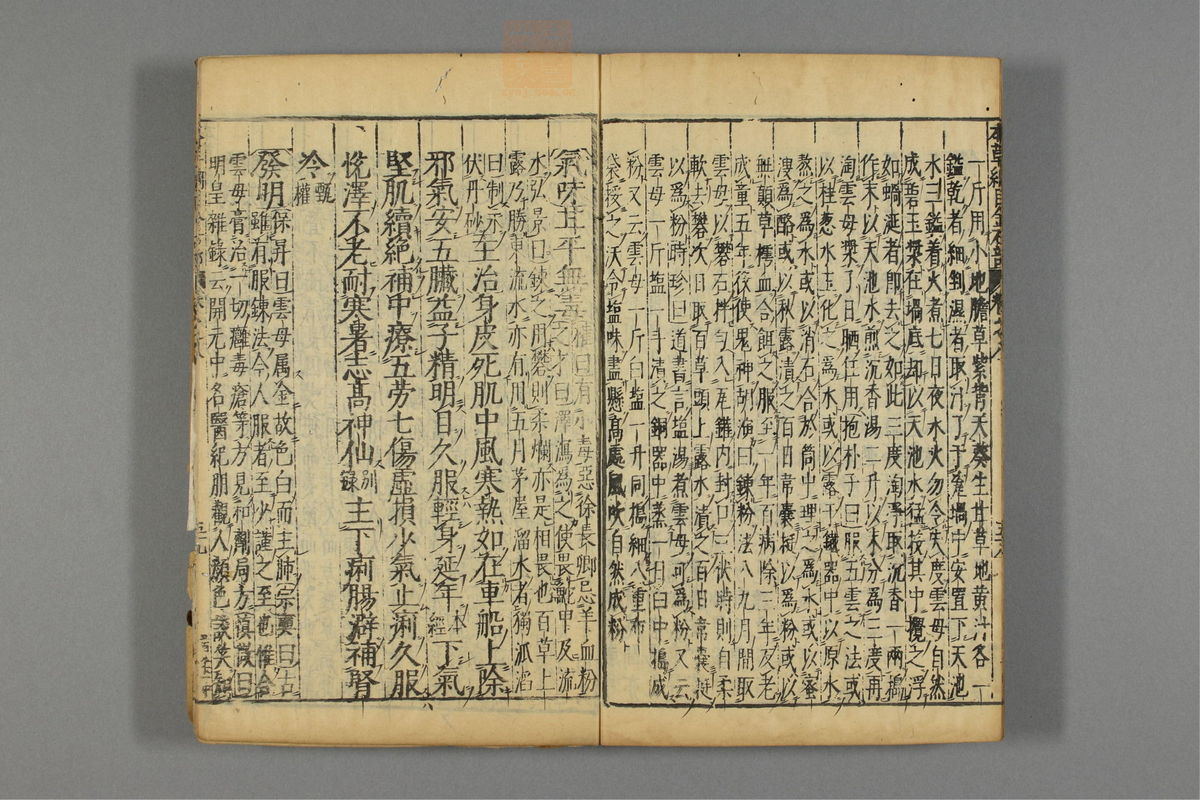 一斤用小地膽草紫背天葵生甘草地黃汁各一
鎰乾者細剉濕者取汁了于甆堝中安置下天池
水三鎰着火煮七日夜水火勿令失度雲母自然
成碧玉漿在堝底却以天池水猛投其中攪之浮
如蝸涎者即去之如此三度淘淨取沉香一兩搗
作末以天池水煎沉香湯二升以末分為三度再
淘雲母漿了日晒任用抱朴子曰服五雲之法或
以桂葱水玉化之為水或以露于鐵器中以原水
熬之為水或以消石合於筒中埋之為水或以蜜
溲為酪或以秋露漬之百日韋囊挻以為粉或以
無顛草樗血合餌之服至一年百病除三年反老
成童五年役使鬼神胡演曰鍊粉法八九月間取
雲母以礬石拌勻入瓦鑵內封口三伏時則自柔
軟去礬次日取百草頭上露水漬之百日韋囊挻
以為粉時珍曰道書言塩湯煮雲母可為粉又云
雲母一斤塩一斗漬之銅器中蒸一日臼中搗成
粉又云雲母一斤白塩一升同搗細入重布
袋挼之沃令塩味盡懸高處風吹自然成粉
氣味甘平無毒權曰有小毒惡徐長卿忌羊血粉
之才曰澤瀉為之使畏鮀甲及流
水弘景曰鍊之用礬則柔爛亦是相畏也百草上
露乃勝東流水亦有用五月茅屋溜水者獨孤滔
曰制汞
伏丹砂主治身皮死肌中風寒熱如在車船上除
邪氣安五臟益子精明目久服輕身延年本經下氣
堅肌續絕補中療五勞七傷虛損少氣止痢久服
悅澤不老耐寒暑志高神仙別錄主下痢腸澼補腎
冷甄權
發明保昇曰雲母屬金故色白而主肺宗奭曰古
雖有服鍊法今人服者至少謹之至也惟合
雲母膏治一切癰毒瘡等方見和劑局方頌曰
明皇雜錄云開元中名醫紀朋觀人顏色談笑